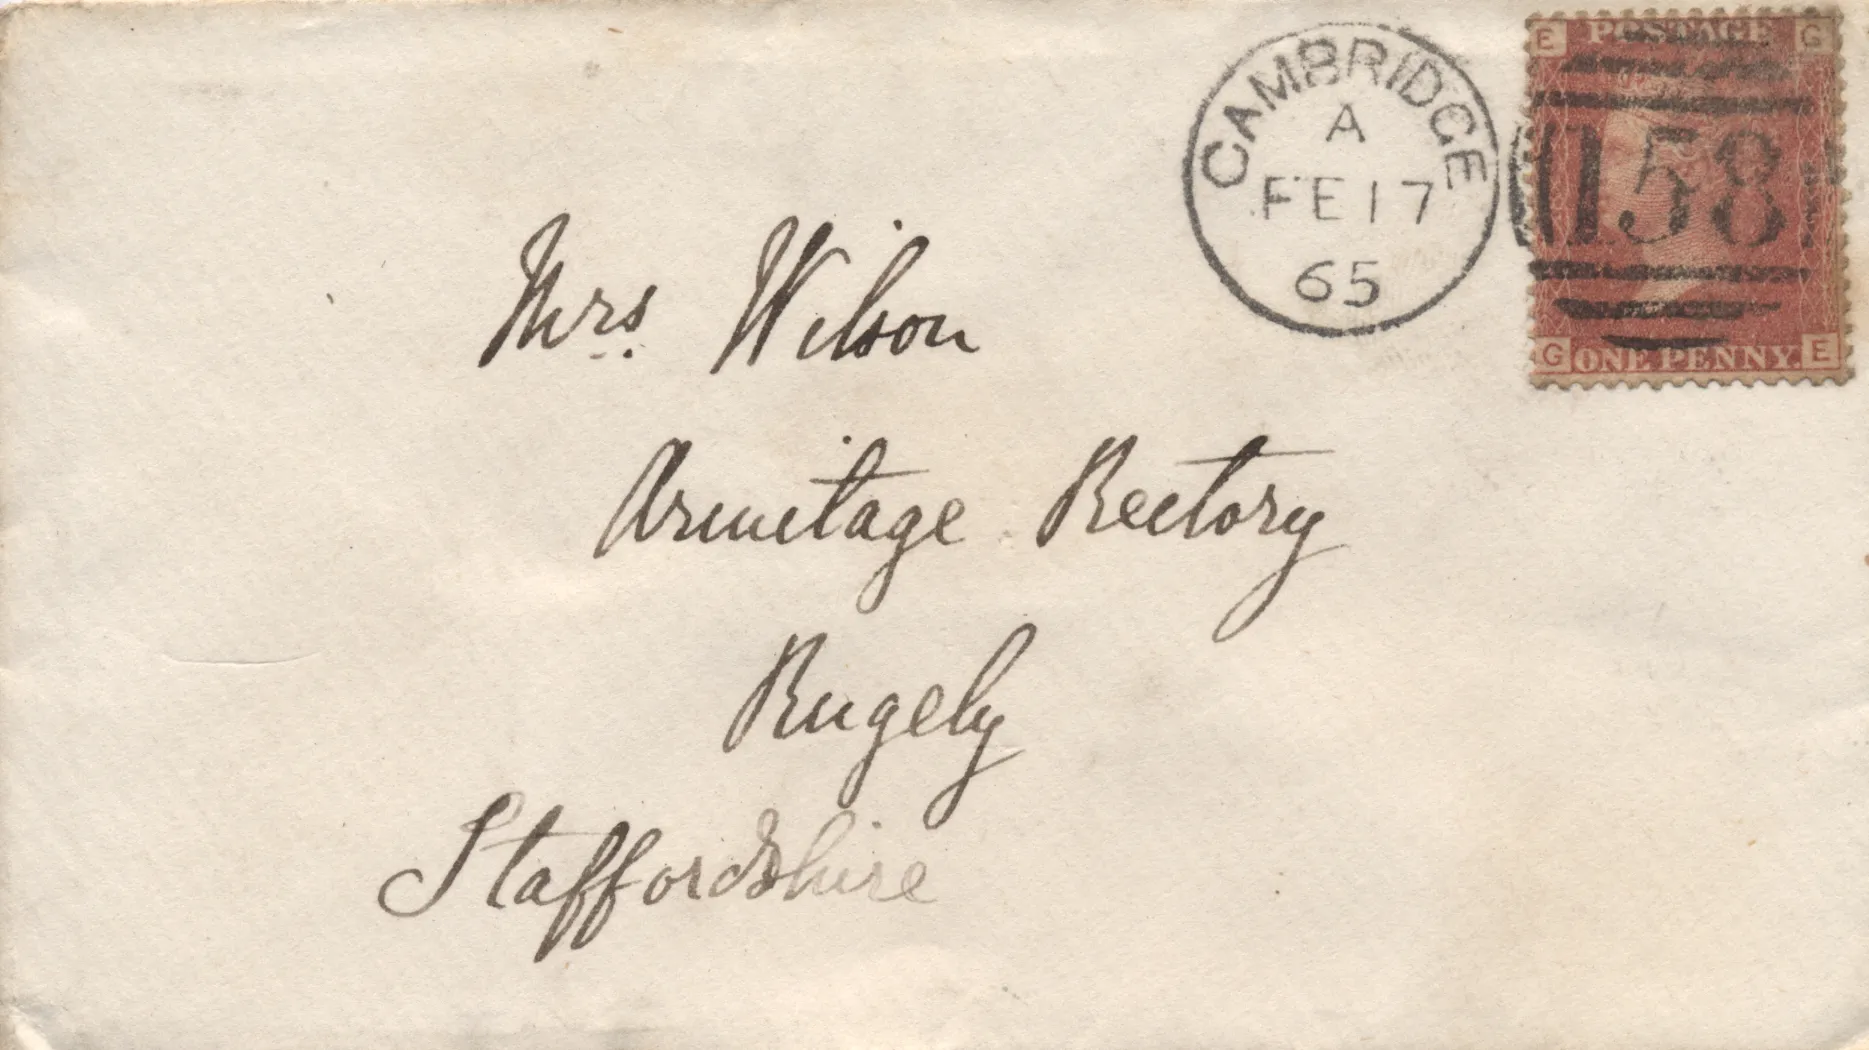 E POSTAGE G
CAMBRIDGE
A
FE 17
65
158
G ONE PENNY. E
Mrs. Wilson
Armitage Rectory
Rugely
Staffordshire